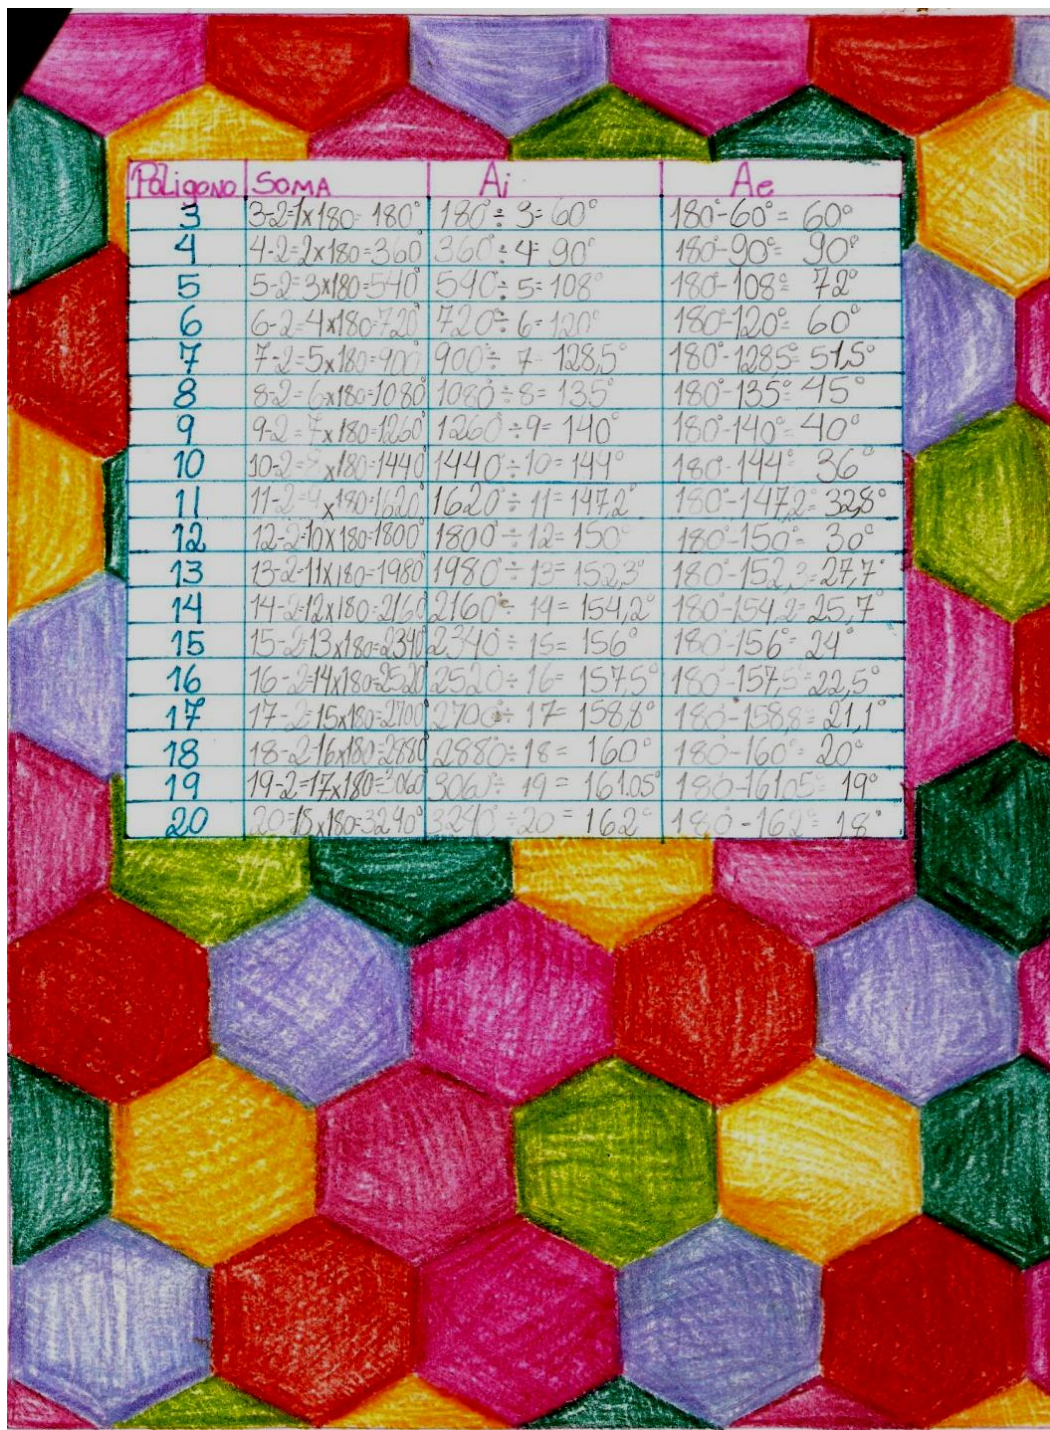 Poligono SOMA Ai Ae
3 3-2=1x180= 180° 180° ÷ 3= 60° 180°-60° = 60°
4 4-2=2x180=360° 360° ÷ 4= 90° 180°-90°= 90°
5 5-2=3x180=540° 540° ÷ 5=108° 180°-108°= 72°
6 6-2=4x180=720° 720° ÷ 6=120° 180°-120°= 60°
7 7-2=5x180=900° 900° ÷ 7 128,5° 180°-128,5°= 51,5°
8 8-2=6x180=1080° 1080° ÷ 8= 135° 180°-135°= 45°
9 9-2=7x180=1260° 1260° ÷ 9= 140° 180°-140°= 40°
10 10-2= x180=1440° 1440° ÷ 10= 144° 180°-144° 36°
11 11-2=9 x180=1620° 1620° ÷ 11=147,2° 180°-147,2= 32,8°
12 12-2=10x180=1800° 1800° ÷ 12= 150° 180°-150°= 30°
13 13-2=11x180=1980° 1980° ÷ 13= 152,3° 180°-152,3=27,7°
14 14-2=12x180=2160° 2160° ÷ 14= 154,2° 180°-154,2=25,7°
15 15-2=13x180=2340° 2340° ÷ 15= 156° 180°-156°= 24°
16 16-2=14x180=2520° 2520° ÷ 16= 157,5° 180°-157,5=22,5°
17 17-2=15x180=2700° 2700° ÷ 17= 158,8° 180°-158,8=21,1°
18 18-2=16x180=2880° 2880° ÷ 18= 160° 180°-160°= 20°
19 19-2=17x180=3060° 3060° ÷ 19 = 161.05° 180-161.05= 19°
20 20=18x180=3240° 3240° ÷ 20 = 162° 180-162= 18°